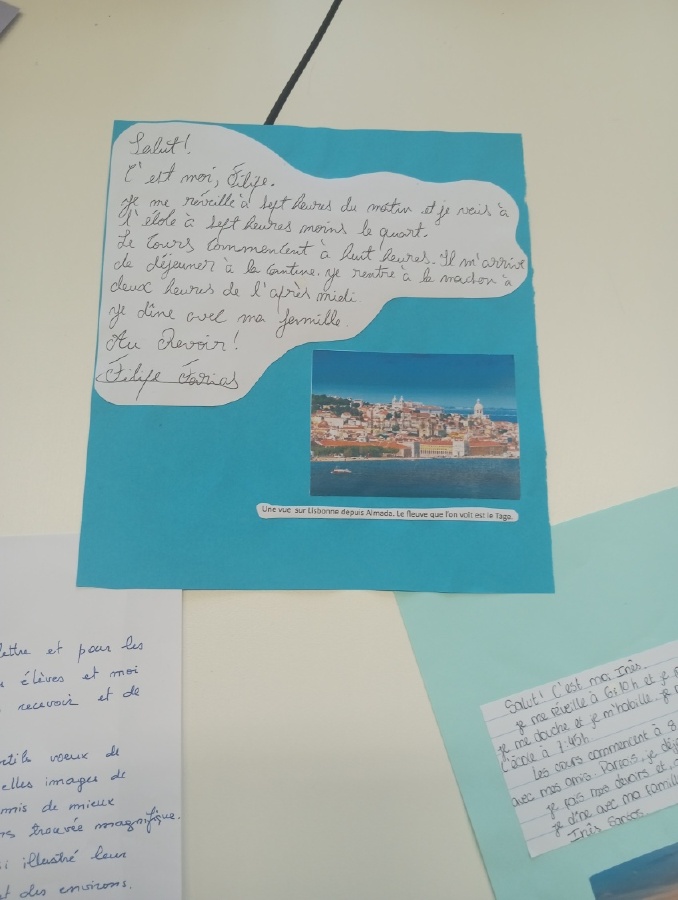 Salut!
C'est moi, Filipe.
Je me réveille à sept heures du matin et je vais à
l'école à sept heures moins le quart.
Le cours commencent à huit heures. Il m'arrive
de déjeuner à la cantine. Je rentre à la maison à
deux heures de l'après midi.
Je dîne avec ma fermille.
Au Revoir!
Filipe Farias
Une vue sur Lisbonne depuis Almada. Le fleuve que l'on voit est le Tage.
lettre et pour les
élèves et moi
recevoir et de
voeux de
elles images de
mis de mieux
trouvée magnifique.
si illustré leur
t des environs.
Salut! C'est moi Inês.
Je me réveille à 6:10h et je
me douche et je m'habille. Je
l'école à 7:45h
Les cours commencent à 8
avec mes amis. Parfois, je déj
je fais mes devoirs et
Je dîne avec ma famill
Inês Sancos